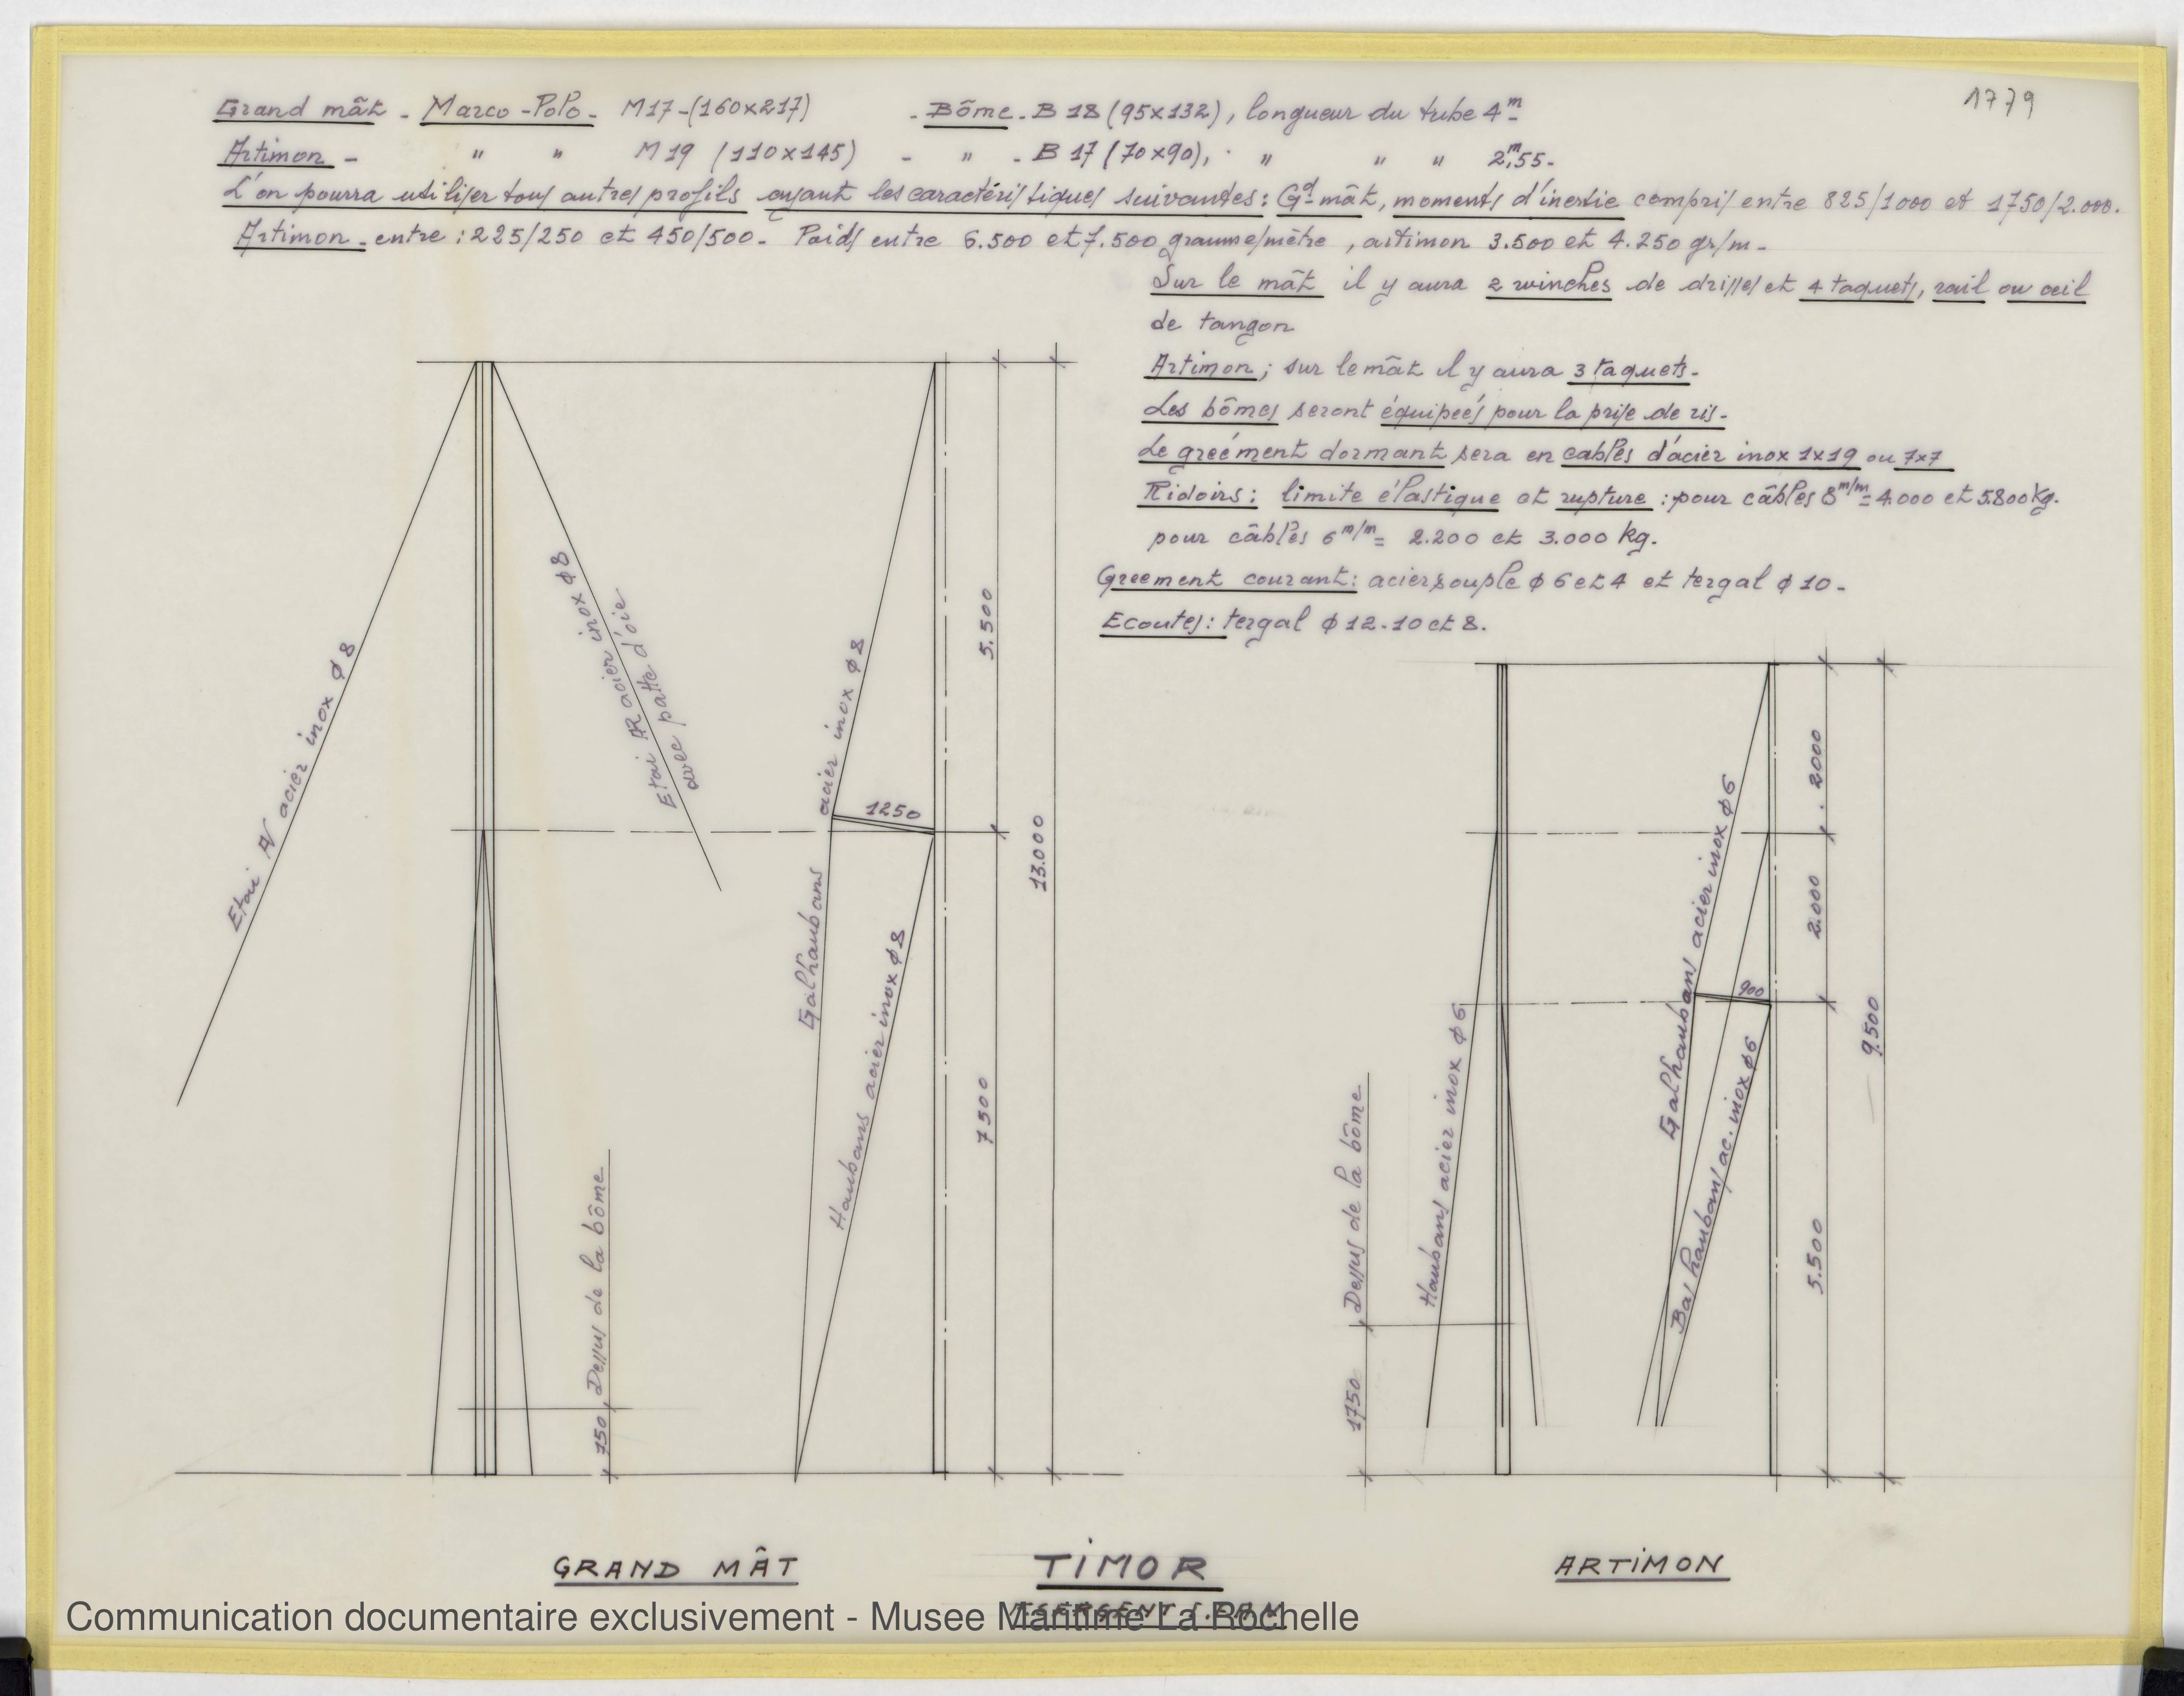 1779
Grand mât - Marco-Polo - M17-(160x217) - Bôme - B 18 (95x132), longueur du tube 4m
Artimon - " " M19 (110x145) - " - B 17 (70x90), " " " 2m,55-
L'on pourra utiliser tous autres profils ayant les caractéristiques suivantes: Gd mât, moments d'inertie compris entre 825/1000 et 1750/2.000.
Artimon - entre : 225/250 et 450/500 - Poids entre 6.500 et 7.500 gramme/mètre, artimon 3.500 et 4.250 gr/m -
Sur le mât il y aura 2 winches de drisses et 4 taquets, rail ou oeil
de tangon
Artimon; sur le mât il y aura 3 taquets.
Les bômes seront équipées pour la prise de ris.
Le greément dormant sera en cables d'acier inox 1x19 ou 7x7
Ridoirs: limite élastique et rupture : pour câbles 8 m/m = 4.000 et 5.800 kg.
pour câbles 6 m/m = 2.200 et 3.000 kg.
Greement courant: acier souple ϕ 6 et 4 et tergal ϕ 10 -
Ecoutes: tergal ϕ 12-10 et 8.
Etai AV acier inox ϕ 8
Etai AR acier inox ϕ 8
avec patte d'oie
Galhaubans acier inox ϕ 8
1250
Haubans acier inox ϕ 8
5.500
7500
13.000
750
Dessus de la bôme
Haubans acier inox ϕ 6
Galhaubans acier inox ϕ 6
900
Bas haubans ac. inox ϕ 6
2000
2.000
5.500
9.500
1750
Dessus de la bôme
GRAND MÂT
TiMOR
ARTiMON
Communication documentaire exclusivement - Musee Maritime La Rochelle